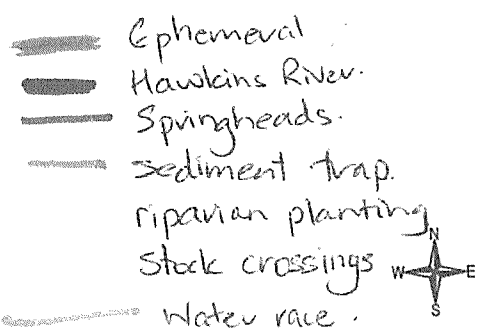 Ephemeral
Hawkins River.
Springheads.
sediment trap.
riparian planting
Stock crossings
N
W E
S
Water race.